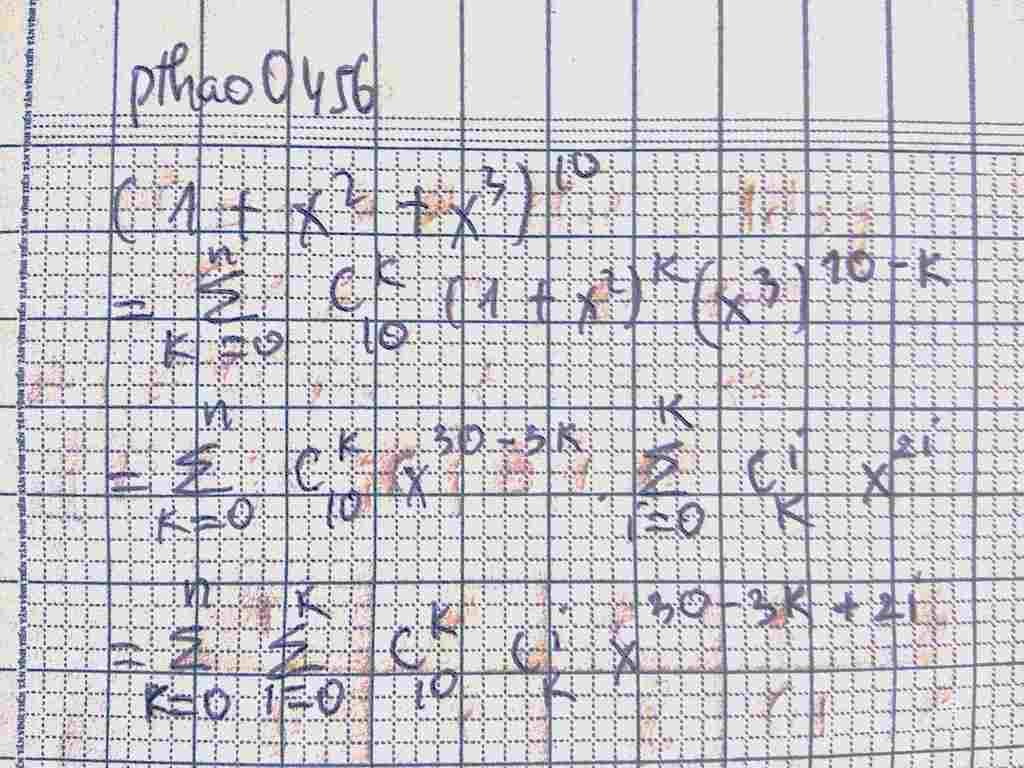 pthao0456
(1 + x² + x³)¹⁰
= Σ_{K=0}^{n} C_{10}^{K} (1 + x²)^{K} (x³)^{10-K}
= Σ_{K=0}^{n} C_{10}^{K} (x^{30-3K} . Σ_{i=0}^{K} C_{K}^{i} x^{2i}
= Σ_{K=0}^{n} Σ_{i=0}^{K} C_{10}^{K} C_{K}^{i} x^{30-3K+2i}